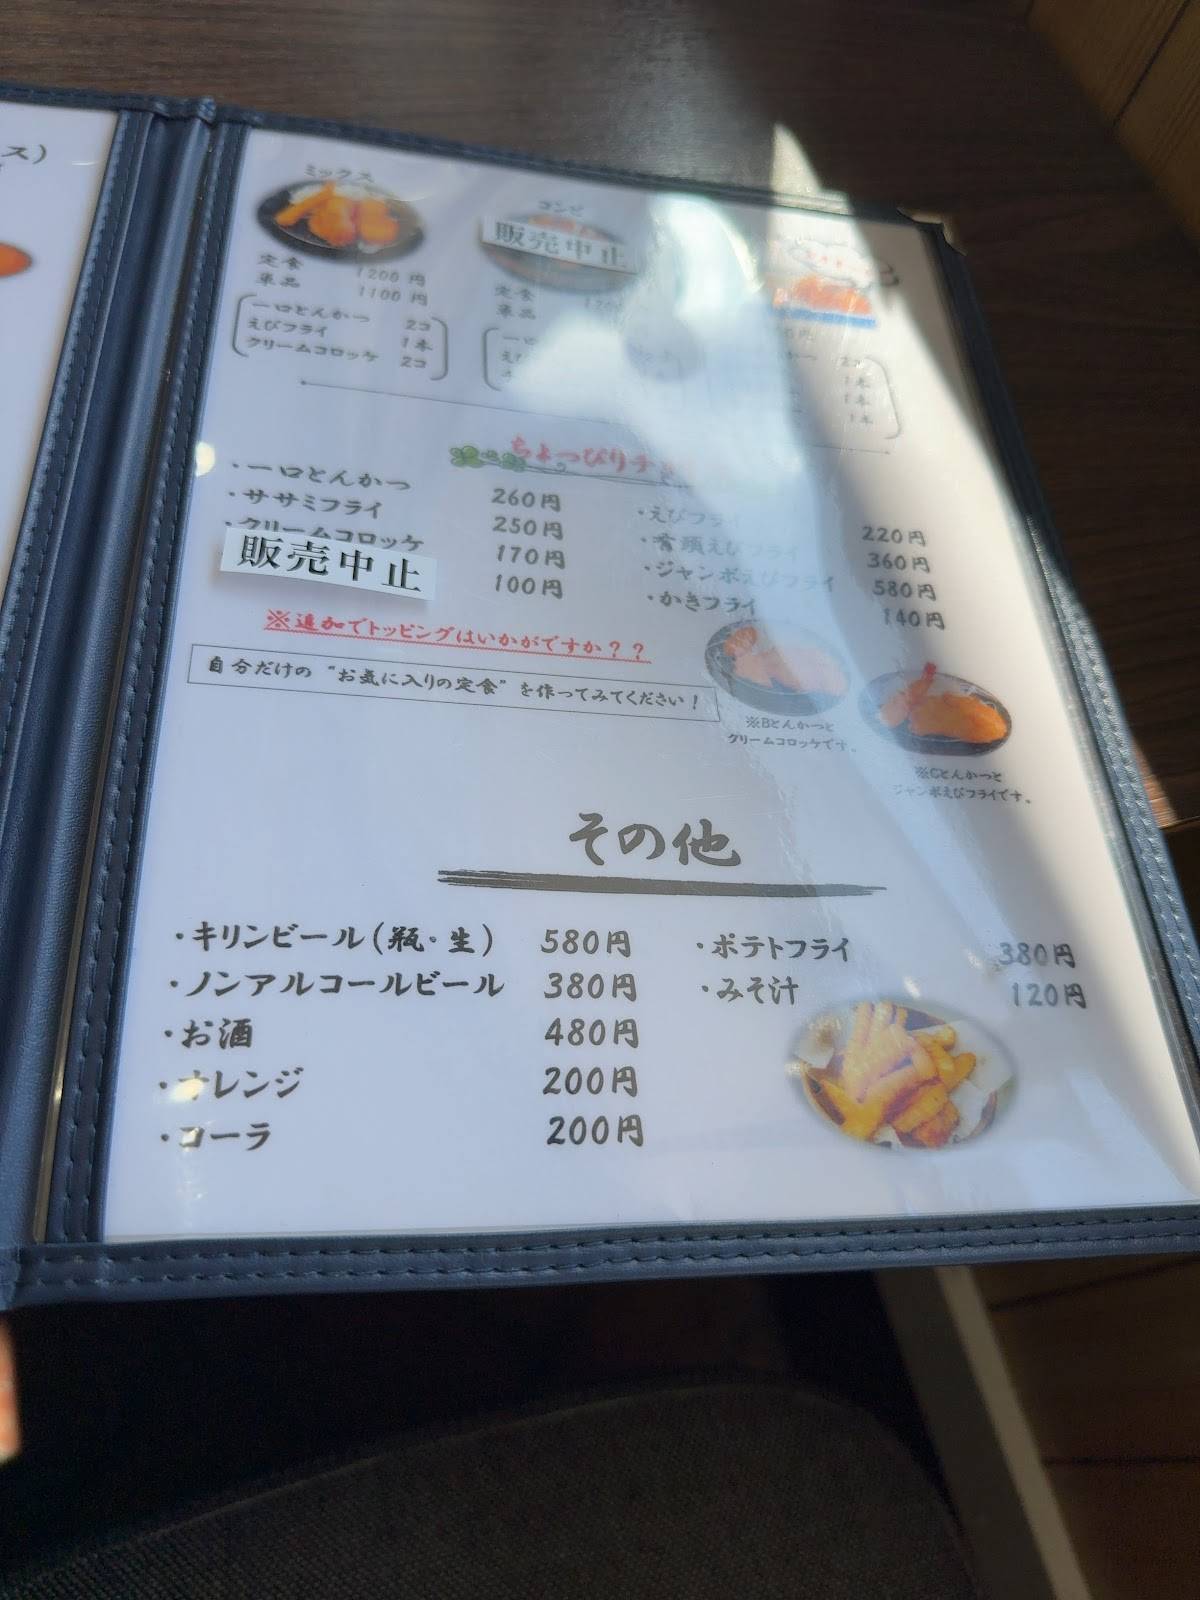 ス)
ミックス
定食 1200円
単品 1100円
一口とんかつ 2コ
えびフライ 1本
クリームコロッケ 2コ
コンビ
販売中止
定食
単品
2コ
1本
1本
1本
ちょっぴり
・一口とんかつ 260円
・ササミフライ 250円
・クリームコロッケ 170円
販売中止 100円
・えびフライ 220円
・有頭えびフライ 360円
・ジャンボえびフライ 580円
・かきフライ 140円
※追加でトッピングはいかがですか??
自分だけの“お気に入りの定食”を作ってみてください!
※Bとんかつと
クリームコロッケです。
※Cとんかつと
ジャンボえびフライです。
その他
・キリンビール(瓶・生) 580円
・ノンアルコールビール 380円
・お酒 480円
・オレンジ 200円
・コーラ 200円
・ポテトフライ 380円
・みそ汁 120円